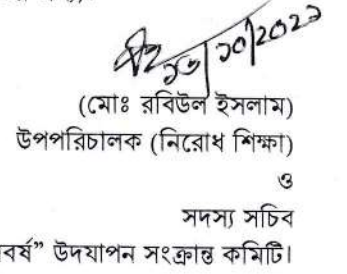 ১৩/১০/২০২১
(মোঃ রবিউল ইসলাম)
উপপরিচালক (নিরোধ শিক্ষা)
ও
সদস্য সচিব
বর্ষ” উদযাপন সংক্রান্ত কমিটি।